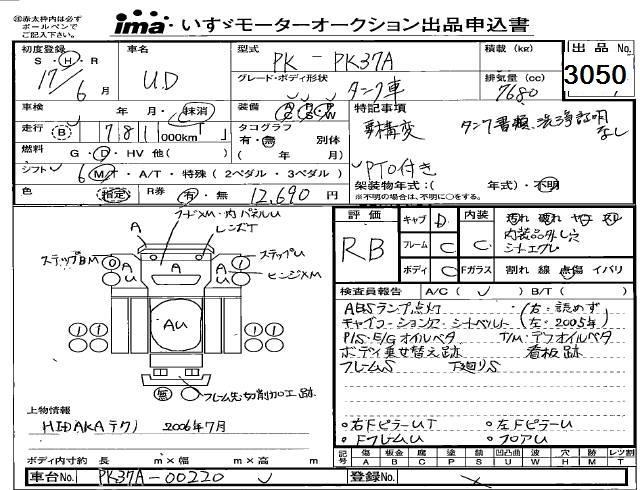 ㊟赤太枠内は必ず
ボールペンで
ご記入下さい。
ima・いすゞモーターオークション出品申込書
初度登録 車名 型式 積載(kg) 出品No.
S・H・R 17 6月 U.D PK-PK37A
グレード・ボディ形状 タンク車 排気量(cc) 7680 3050
車検 年 月・抹消 装備 特記事項
走行 B 781 000km
タコグラフ 有・無 別体 ( 年 月)
タンク書類、洗浄証明なし
燃料 G・D・HV 他( )
PTO付き
シフト 6 M・A/T・特殊(2ペダル・3ペダル)
架装物年式:( 年式)・不明
※不明の場合は、不明に○をする。
色 指定 R券 有・無 12,690円
評価 RB キャブ D 内装 C
内装品外し穴
フレーム C
ボディ C Fガラス 割れ 線 点傷 イバリ
検査員報告 A/C( ) B/T( )
ABSランプ点灯 (右:読めず
(左:2005年)
P/S・E/Gオイルベタ T/M・デフオイルベタ
ボディ乗せ替え跡 看板跡
フレームS 下廻りS
右FピラーUT 左FピラーU
FフレームU フロアU
A レンズT
ステップBM ステップU
ヒンジXM
A A A
U U
AU
1 1 1 1
無 フレーム先切削加工跡
上物情報
HIDAKAテクノ 2006年7月
ボディ内寸約 長 m×幅 m×高 m
記号 傷 板金 腐 塗 錆 凹凸曲 波 穴 跡 レツ割
A B C P S U W H M T
車台No. PK37A-00220 登録No.